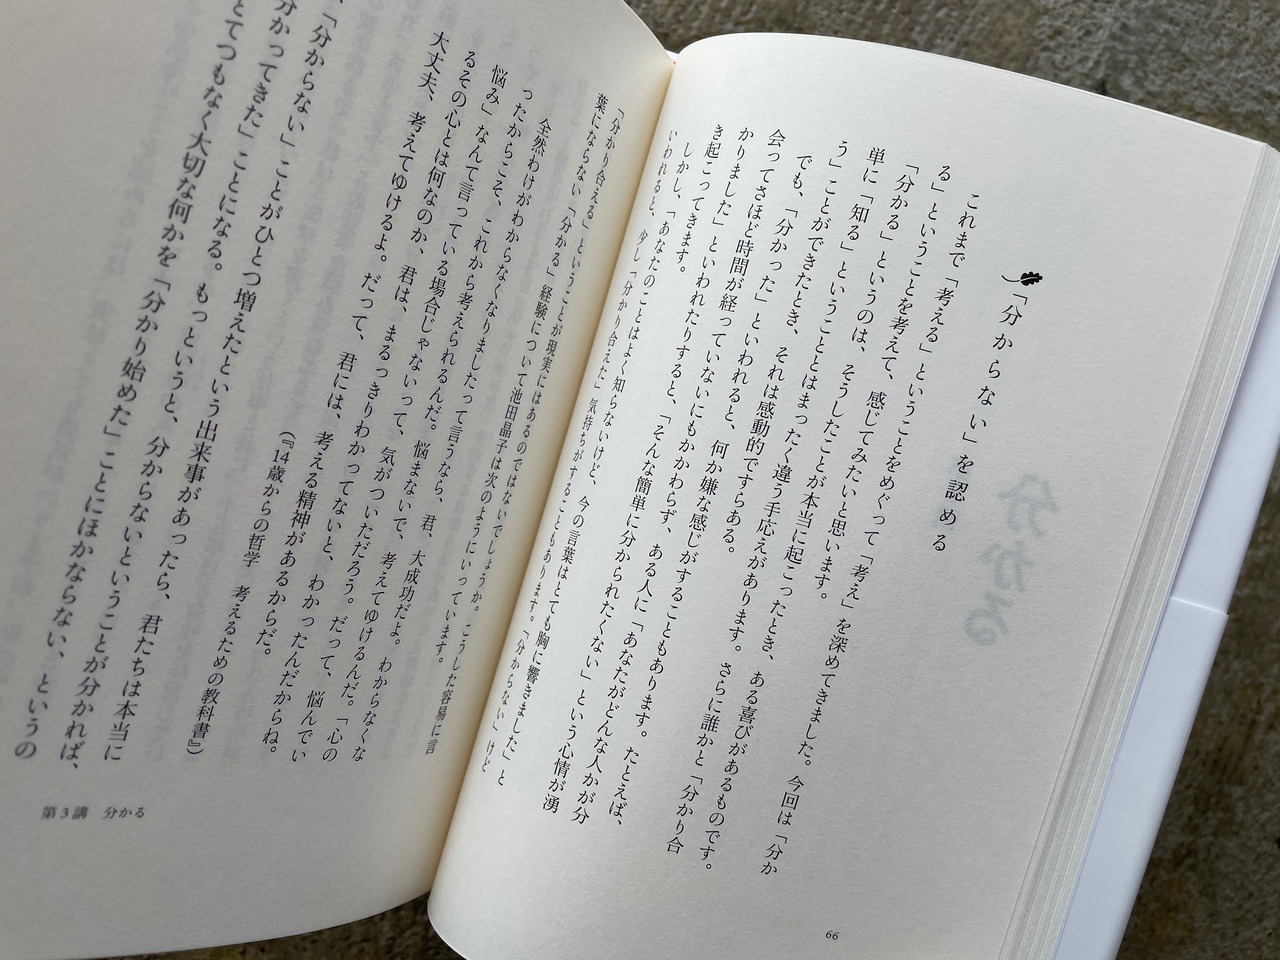 「分からない」を認める
これまで「考える」ということをめぐって「考え」を深めてきました。今回は「分か
る」ということを考えて、感じてみたいと思います。
「分かる」というのは、そうしたことが本当に起こったとき、ある喜びがあるものです。
単に「知る」ということとはまったく違う手応えがあります。さらに誰かと「分かり合
う」ことができたとき、それは感動的ですらある。
でも、「分かった」といわれると、何か嫌な感じがすることもあります。たとえば、
会ってさほど時間が経っていないにもかかわらず、ある人に「あなたがどんな人かが分
かりました」といわれたりすると、「そんな簡単に分かられたくない」という心情が湧
き起こってきます。
しかし、「あなたのことはよく知らないけど、今の言葉はとても胸に響きました」と
いわれると、少し「分かり合えた」気持ちがすることもあります。「分からない」けど
「分かり合える」ということが現実にはあるのではないでしょうか。こうした容易に言
葉にならない「分かる」経験について池田晶子は次のようにいっています。
全然わけがわからなくなりましたって言うなら、君、大成功だよ。わからなくな
ったからこそ、これから考えられるんだ。悩まないで、考えてゆけるんだ。「心の
悩み」なんて言っている場合じゃないって、気がついただろう。だって、悩んでい
るその心とは何なのか、君は、まるっきりわかってないと、わかったんだからね。
大丈夫、考えてゆけるよ。だって、君には、考える精神があるからだ。
(『14歳からの哲学 考えるための教科書』)
「分からない」ことがひとつ増えたという出来事があったら、君たちは本当に
分かってきた」ことになる。もっというと、分からないということが分かれば、
とてつもなく大切な何かを「分かり始めた」ことにほかならない、というの
分かる
66
第3講 分かる